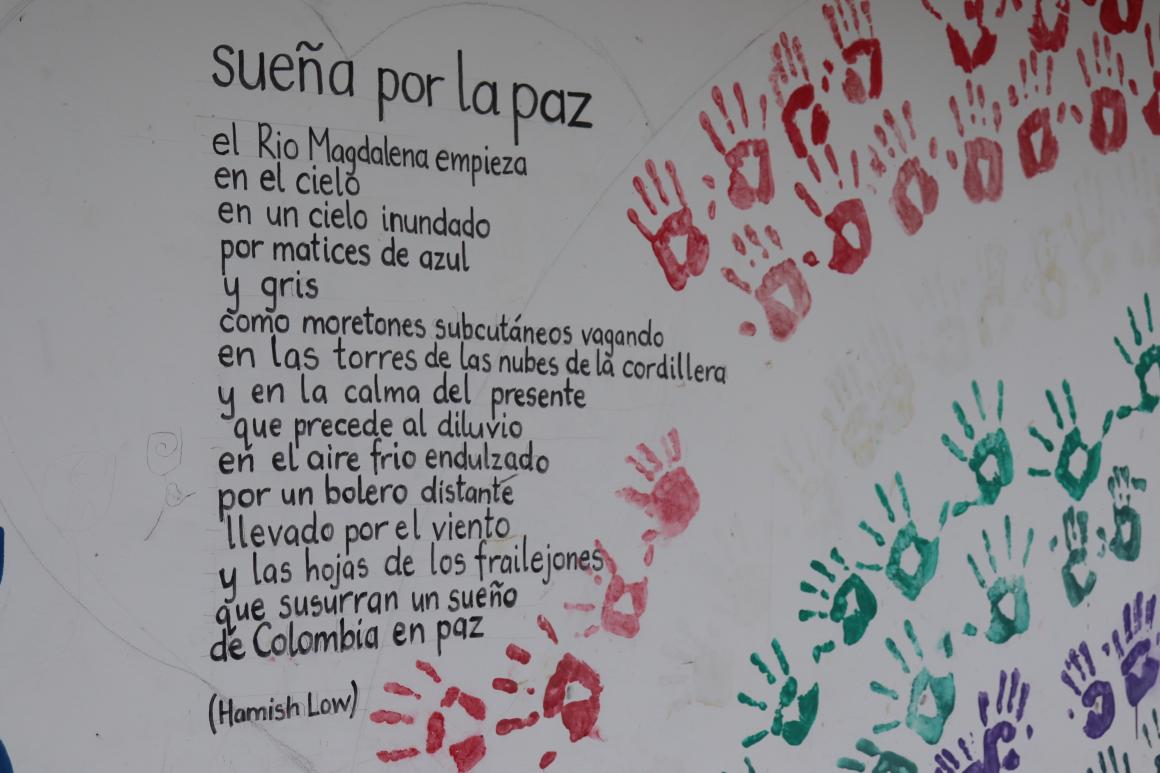 sueña por la paz
el Rio Magdalena empieza
en el cielo
en un cielo inundado
por matices de azul
y gris
como moretones subcutáneos vagando
en las torres de las nubes de la cordillera
y en la calma del presente
que precede al diluvio
en el aire frio endulzado
por un bolero distante
llevado por el viento
y las hojas de los frailejones
que susurran un sueño
de Colombia en paz
(Hamish Low)